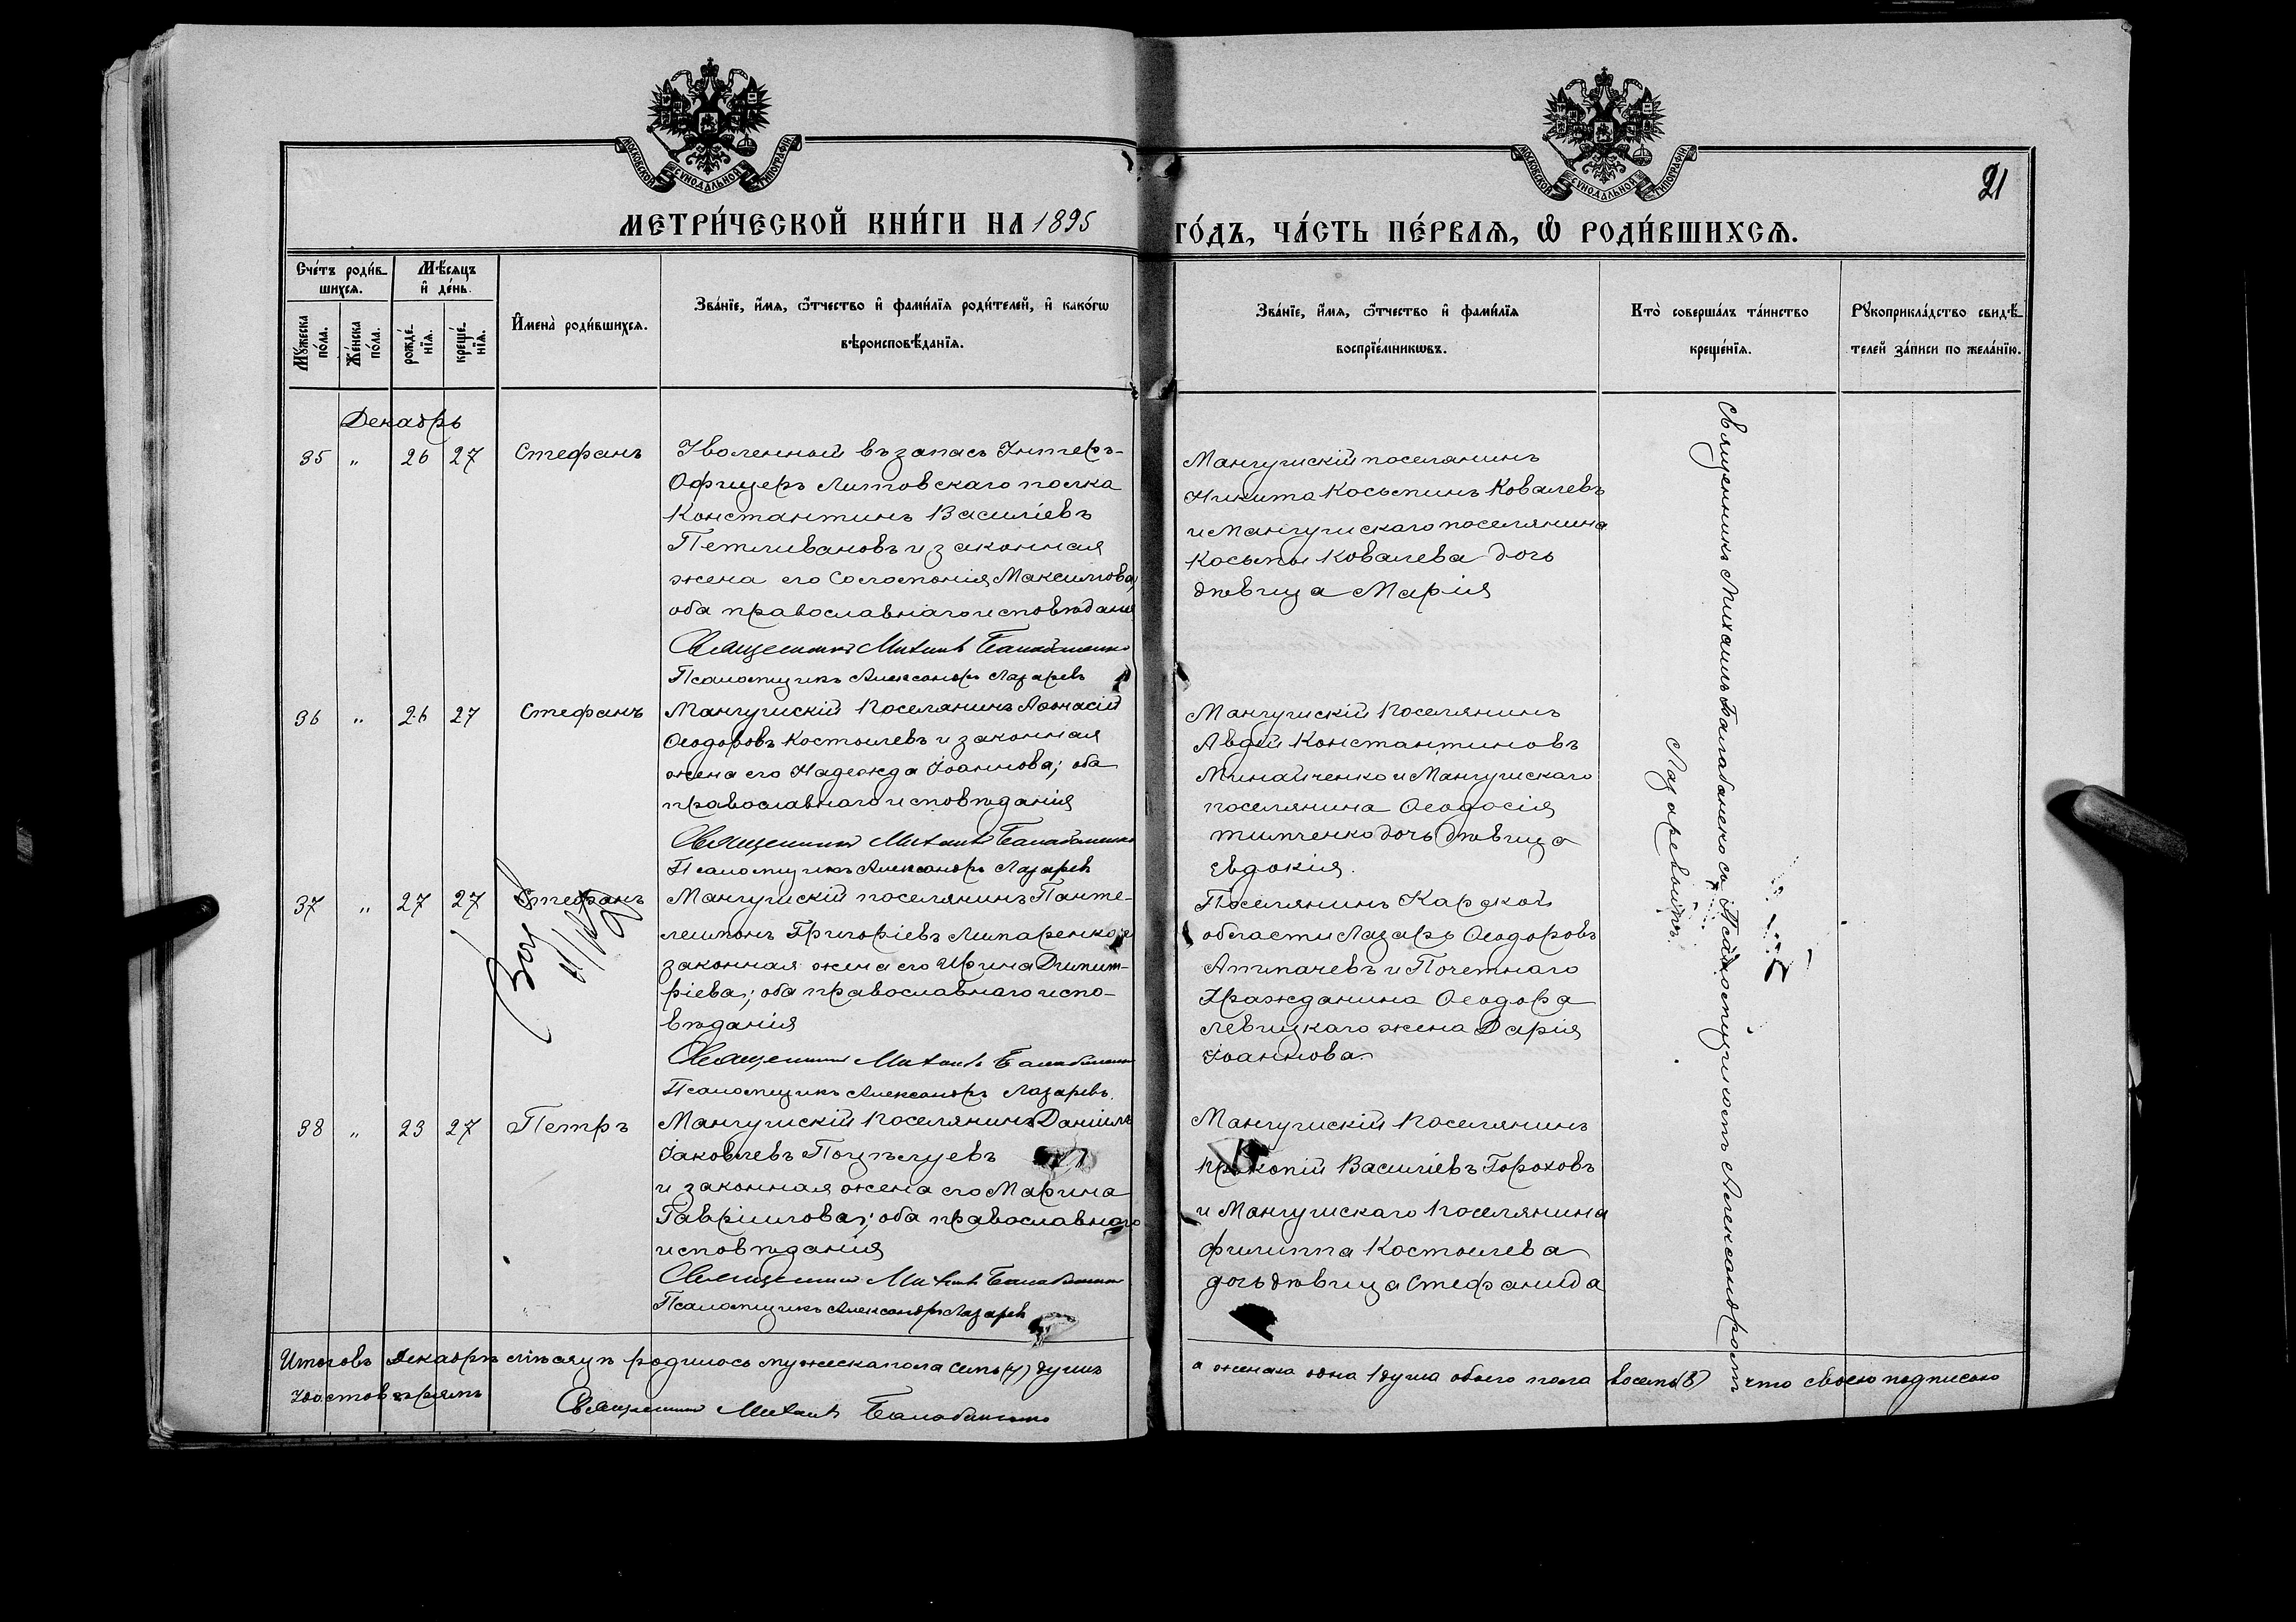 МОСКОВСКОЙ СѴНОДАЛЬНОЙ ТИПОГРАФІИ
МОСКОВСКОЙ СѴНОДАЛЬНОЙ ТИПОГРАФІИ
21
МЕТРИ́ЧЕСКОЙ КНИ́ГИ НА 1895 ГО́ДЪ, ЧА́СТЬ ПЕ́РВАѦ, Ѽ РОДИ́ВШИХСѦ.
Сче́тъ роди́в-
шихсѧ.
Мѣ́сѧцъ
и҆ де́нь.
Мꙋ́жеска
по́ла.
Же́нска
по́ла.
рожде́-
нїѧ.
креще́-
нїѧ.
И҆мена̀ роди́вшихсѧ.
Зва́нїе, и҆́мѧ, ѻ҆́тчество и҆ фами́лїѧ роди́телей, и҆ како́гѡ
вѣроисповѣ́данїѧ.
Зва́нїе, и҆́мѧ, ѻ҆́тчество и҆ фами́лїѧ
воспрїе́мникѡвъ.
Кто̀ соверша́лъ та́инство
креще́нїѧ.
Рꙋкоприкла́дство свидѣ́-
телей за́писи по жела́нїю.
Декабрь
35 " 26 27 Стефанъ
Уволенной въ запасъ Унтеръ-
Офицеръ Литовскаго полка
Константинъ Василіевъ
Петливановъ и законная
жена его Соломонія Максимова,
оба православнаго исповѣданія
Священникъ Михаилъ Балабаненко
Псаломщикъ Александръ Лазаревъ
Мангушскій поселянинъ
Никита Косьминъ Ковалевъ
и Мангушскаго поселянина
Косьмы Ковалева дочь
дѣвица Марія
36 " 26 27 Стефанъ
Мангушскій поселянинъ Аѳанасій
Ѳеодоровъ Костылевъ и законная
жена его Надежда Іоаннова; оба
православнаго исповѣданія
Священникъ Михаилъ Балабаненко
Псаломщикъ Александръ Лазаревъ
Мангушскій поселянинъ
Авдей Константиновъ
Минайченко и Мангушскаго
поселянина Ѳеодосія
Тимченко дочь дѣвица
Евдокія.
37 " 27 27 Стефанъ
Мангушскій поселянинъ Панте-
леимонъ Григоріевъ Липаренко и
законная жена его Ирина Димит-
ріева; оба православнаго испо-
вѣданія
Священникъ Михаилъ Балабаненко
Псаломщикъ Александръ Лазаревъ.
Поселянинъ Карской
области Лазарь Ѳеодоровъ
Атмачевъ и Почетнаго
Гражданина Ѳеодора
Левицкаго жена Дарія
Іоаннова.
38 " 23 27 Петръ
Мангушскій поселянинъ Даніилъ
Іаковлевъ Поцѣлуевъ
и законная жена его Марина
Гавріилова; оба православнаго
исповѣданія
Священникъ Михаилъ Балабаненко
Псаломщикъ Александръ Лазаревъ
Мангушскій поселянинъ
Прокопій Василіевъ Гороховъ
и Мангушскаго поселянина
Филиппа Костылева
дочь дѣвица Стефанида
Священникъ Михаилъ Балабаненко съ Псаломщикомъ Александромъ
Лазаревымъ.
Итого въ Декабрѣ мѣсяцѣ родилось мужеска пола семь (7) душъ а женска одна 1 душа обоего пола восемь (8) что своею подписью
удостовѣряемъ
Священникъ Михаилъ Балабаненко